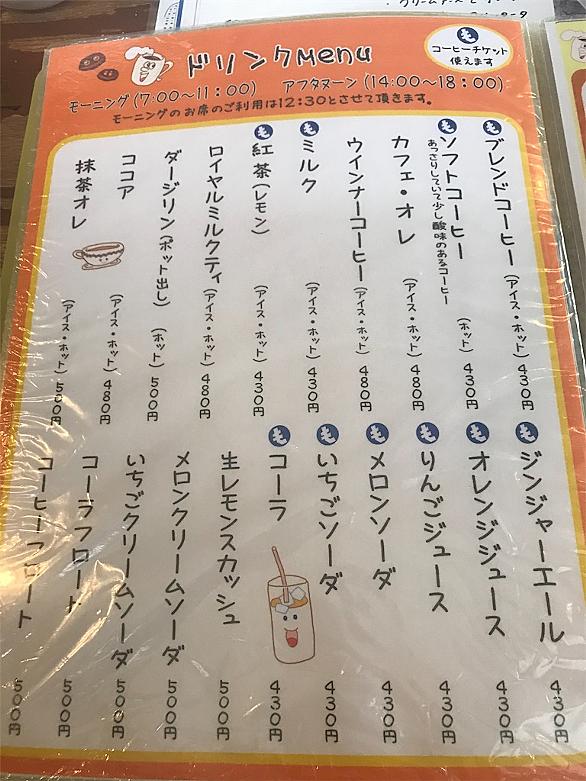 ドリンクMenu
も
コーヒーチケット
使えます
モーニング(7:00〜11:00) アフタヌーン(14:00〜18:00)
モーニングのお席のご利用は12:30とさせて頂きます。
も ブレンドコーヒー (アイス・ホット) 430円
も ソフトコーヒー (ホット) 430円
あっさりしていて少し酸味のあるコーヒー
カフェ・オレ (アイス・ホット) 480円
ウインナーコーヒー (アイス・ホット) 480円
も ミルク (アイス・ホット) 430円
も 紅茶(レモン) (アイス・ホット) 430円
ロイヤルミルクティ (アイス・ホット) 480円
ダージリン(ポット出し) (ホット) 500円
ココア (アイス・ホット) 480円
抹茶オレ (アイス・ホット) 550円
も ジンジャーエール 430円
も オレンジジュース 430円
も りんごジュース 430円
も メロンソーダ 430円
も いちごソーダ 430円
も コーラ 430円
生レモンスカッシュ 500円
メロンクリームソーダ 500円
いちごクリームソーダ 500円
コーラフロート 500円
コーヒーフロート 500円